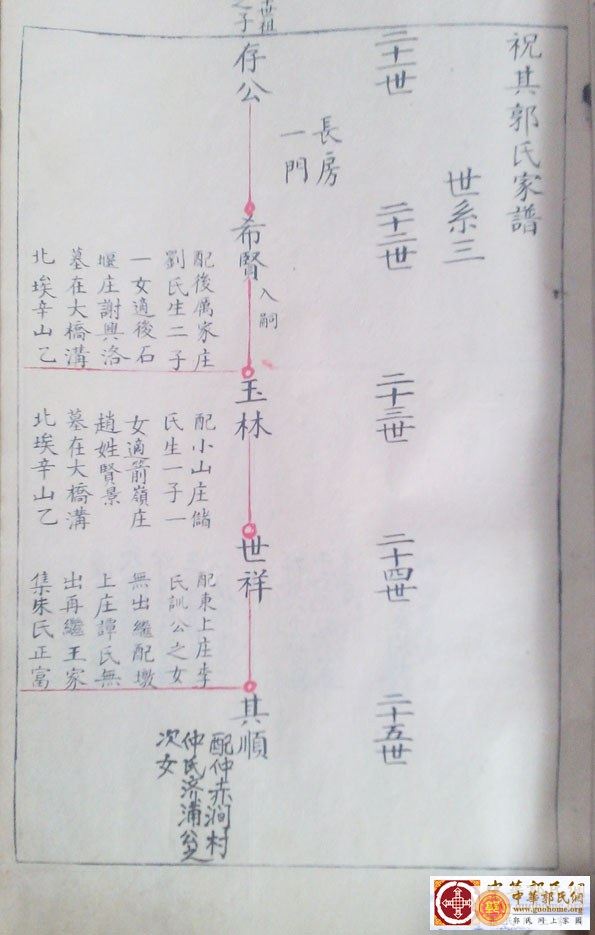 祝其郭氏家譜
世系三
二十一世
二十二世
二十三世
二十四世
二十五世
長房
一門
之子
存公
希賢
入嗣
配後厲家庄
劉氏生二子
一女適後石
堰庄謝興洛
墓在大橋溝
北埃辛山乙
玉林
配小山庄儲
氏生一子一
女適箭嶺庄
趙姓賢景
墓在大橋溝
北埃辛山乙
世祥
配東上庄李
氏訓公之女
無出繼配墩
上庄譚氏無
出再繼王家
集朱氏正富
其順
配仲赤澗村
仲氏济浦公之
次女
中華郭氏網
www.guohome.org
郭氏网上家園